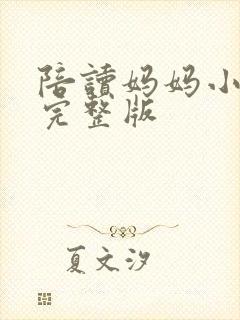 陪讀妈妈小
完整版
夏文汐